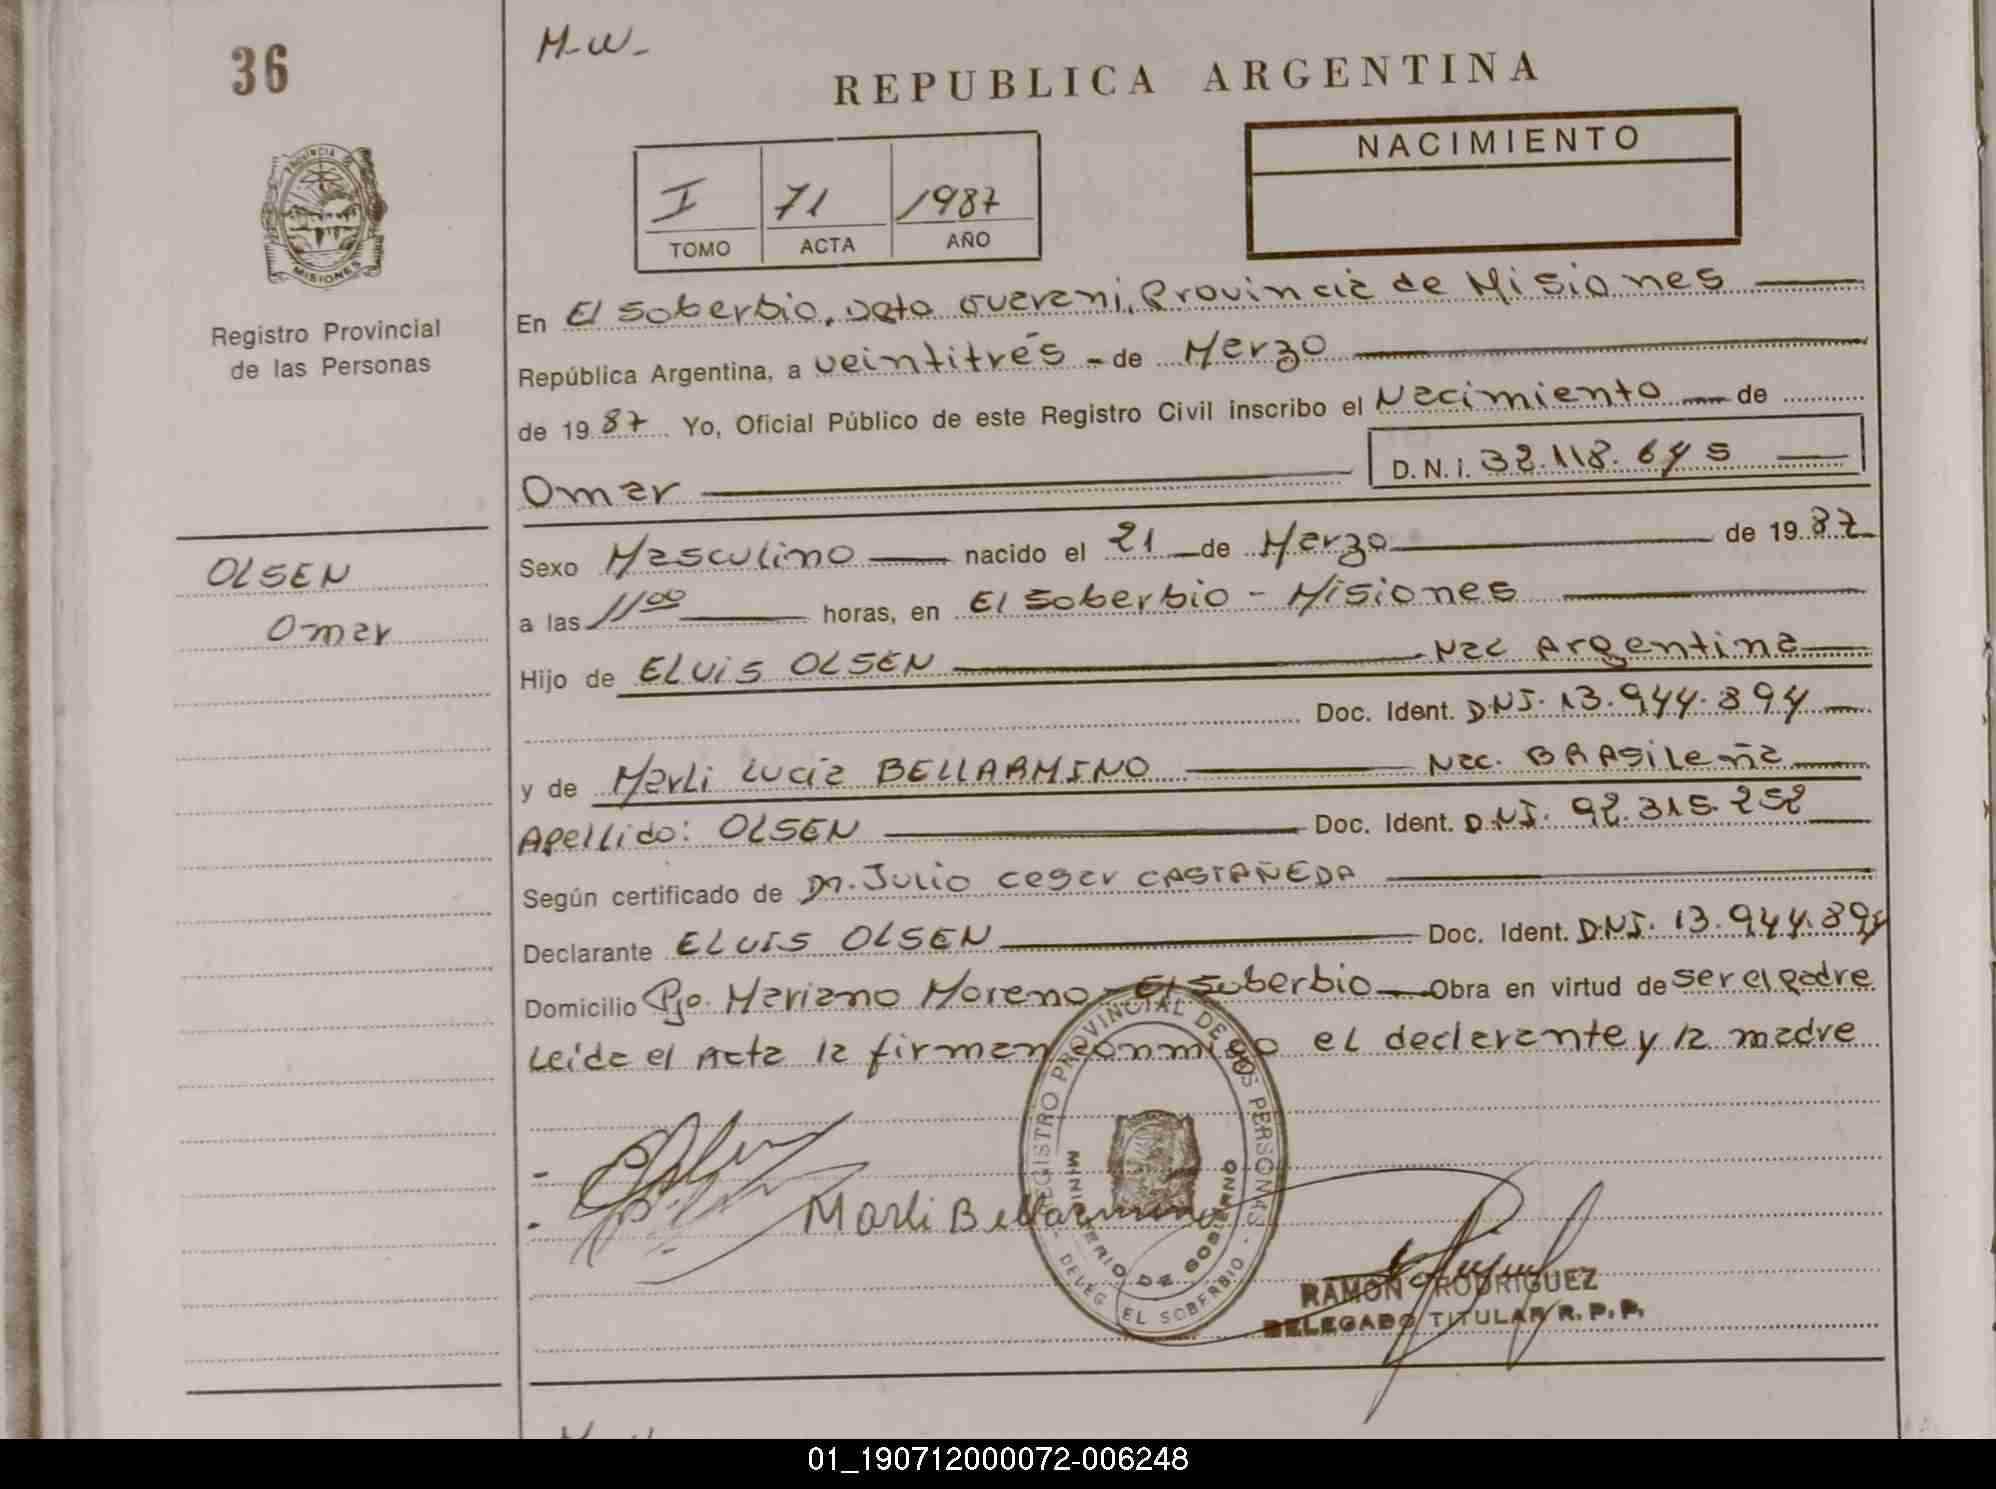 36
M-W-
REPUBLICA ARGENTINA
NACIMIENTO
I 71 1987
TOMO ACTA AÑO
PROVINCIA DE
MISIONES
Registro Provincial
de las Personas
En El Soberbio, Dpto Guarani, Provincia de Misiones
República Argentina, a veintitrés - de Marzo
de 1987 Yo, Oficial Público de este Registro Civil inscribo el Nacimiento de
Omar D.N.I. 32.118.645
OLSEN
Omar
Sexo Masculino nacido el 21 de Marzo de 1987
a las 11 00 horas, en El Soberbio - Misiones
Hijo de ELVIS OLSEN Nac Argentina
Doc. Ident. DNI. 13.944.894
y de Marli Lucia BELLARMINO Nac. BRASileña
Apellido: OLSEN Doc. Ident. DNI. 92.315.252
Según certificado de Dr. Julio Cesar CASTAÑEDA
Declarante ELVIS OLSEN Doc. Ident. DNI. 13.944.894
Domicilio Pje. Mariano Moreno - El Soberbio Obra en virtud de ser el padre
Leida el Acta la firman conmigo el declarante y la madre
REGISTRO PROVINCIAL DE LAS PERSONAS
MINISTERIO DE GOBIERNO
DELEG. EL SOBERBIO
Marli Bellarmino
RAMON RODRIGUEZ
DELEGADO TITULAR R.P.P.
01_190712000072-006248